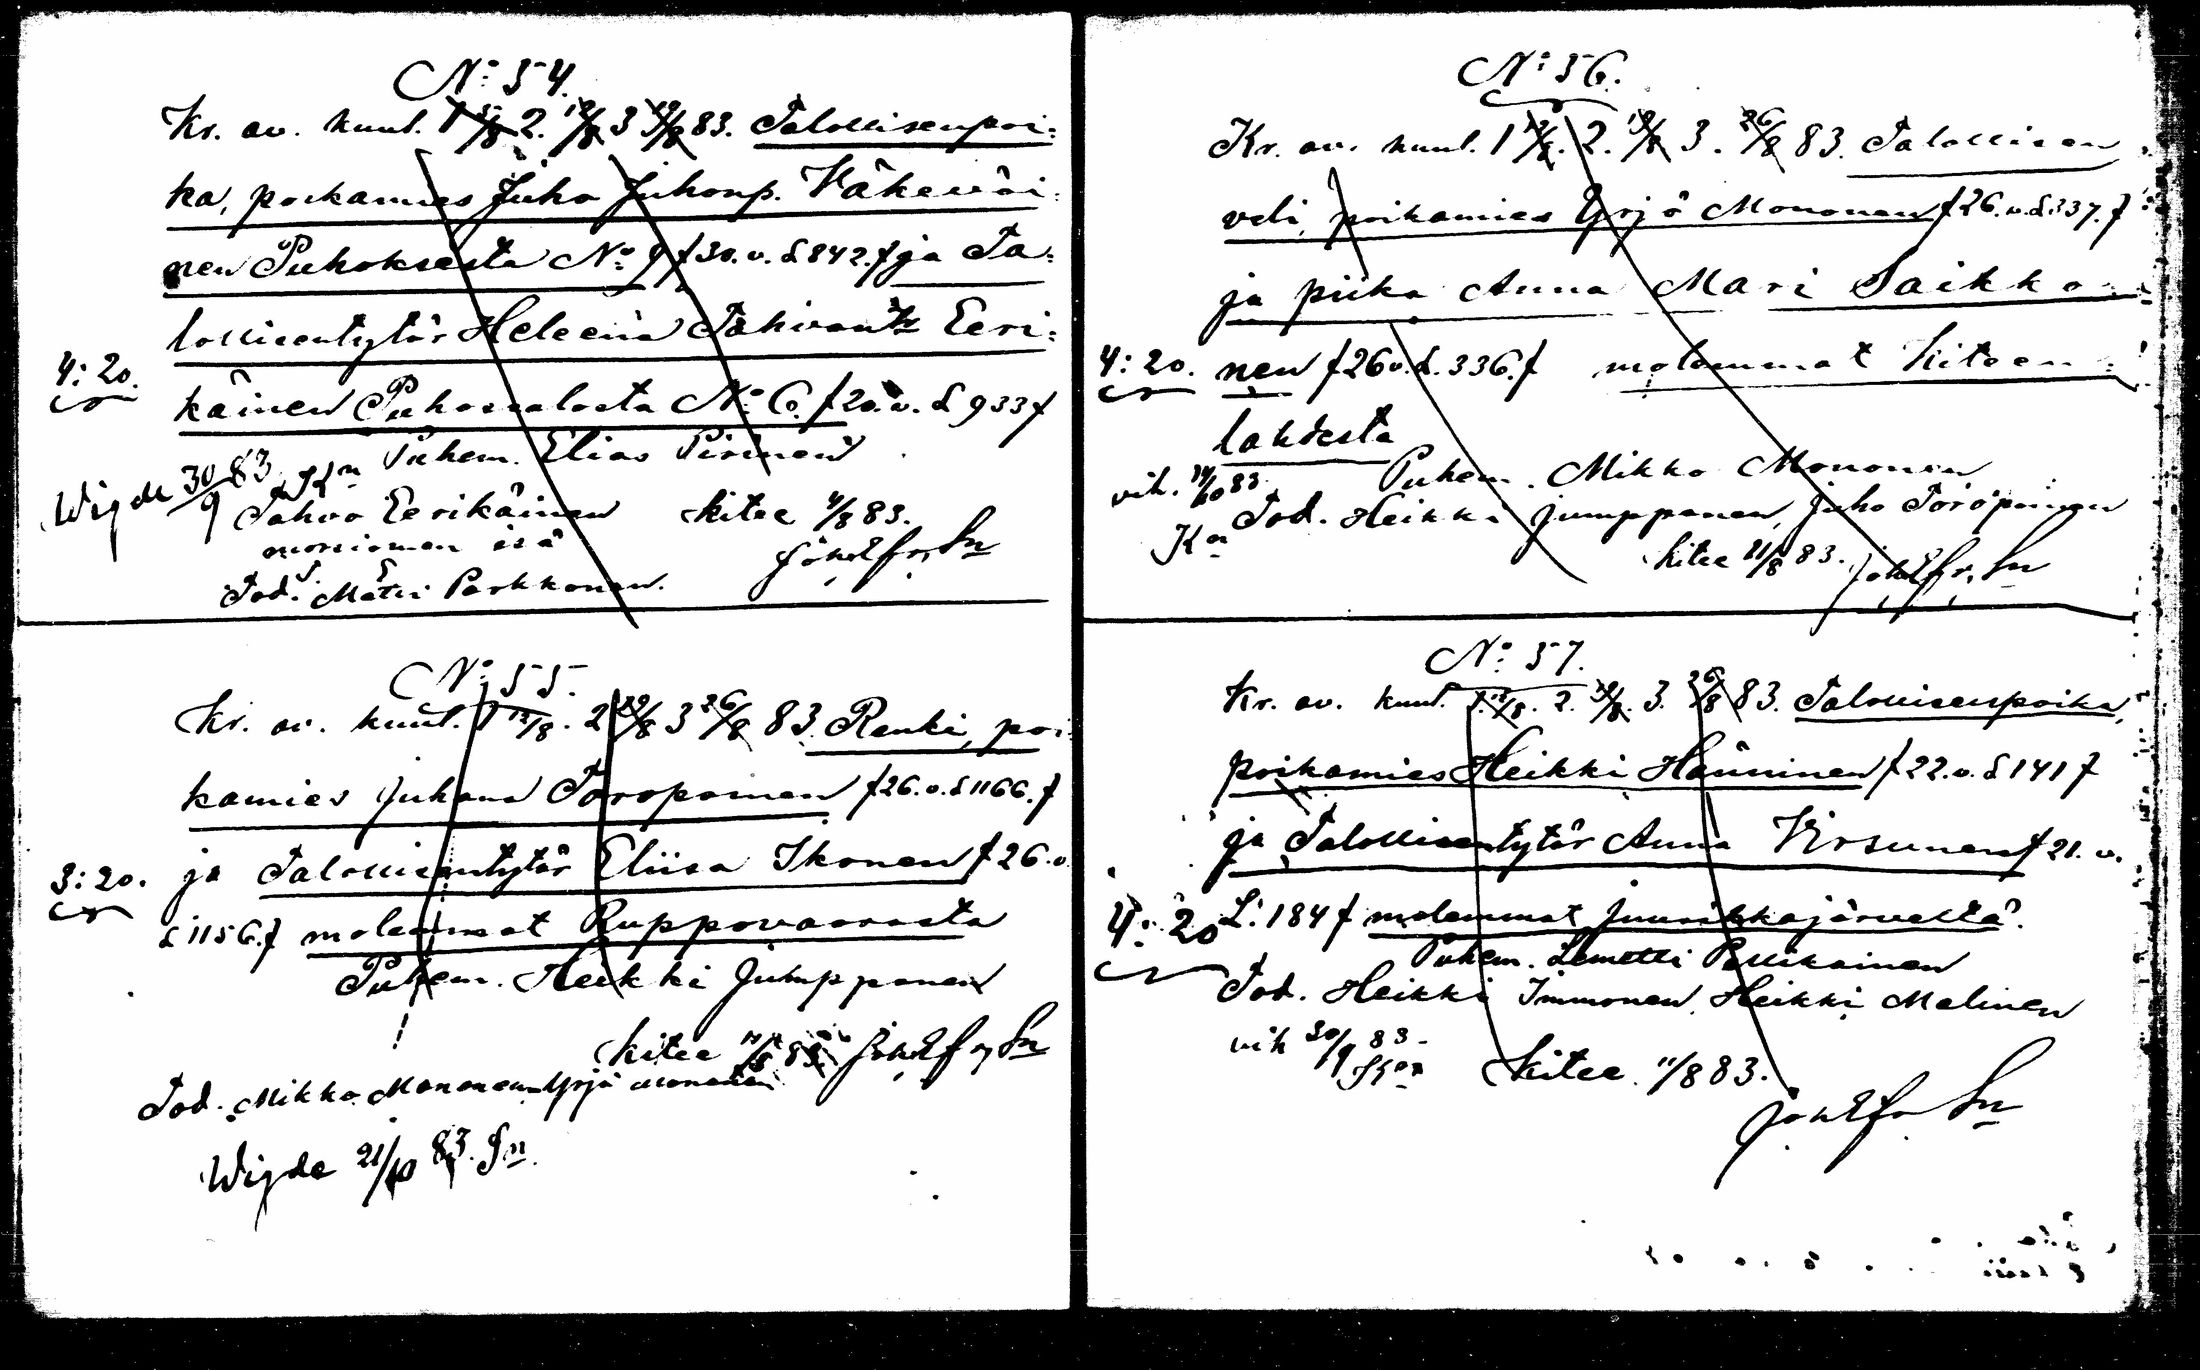 No: 54.
Kr. av. kuul. 1 5/8 2. 12/8 3 19/8 83. Talollisenpoi=
ka, poikamies Juho Juhonp. Väkeväi=
nen Puhoksesta No: 9 f 30. v. S 842. f ja Ta=
lollisentytär Heleena Tahvantr Eeri=
4: 20. käinen Puhossalosta No: 6. f 20. v. S 933 f
Puhem. Elias Pirinen
Wigde 30/9 83. Kn
Tahvo Eerikäinen Kitee 4/8 83.
morsiamen isä
Tod. Matti Parkkonen.
No: 55.
Kr. av. kuul. 1 12/8. 2 19/8 3 26/8 83. Renki, poi=
kamies Juhana Toropainen f 26. v. S 1166. f
3: 20. ja Talollisentytär Eliisa Ikonen f 26. v.
S 1156. f molemmat Ruppovaarasta
Puhem. Heikki Jumppanen
Kitee 83.
Tod. Mikko Mononen Yrjö Mononen
Wigde 21/10 83. Sn.
No: 56.
Kr. av. kuul. 1 12/8. 2. 19/8 3. 26/8 83. Talollisen
veli, poikamies Yrjö Mononen f 26. v. S. 337. f
ja piika Anna Mari Saikko=
4: 20. nen f 26 v. S. 336. f molemmat Kiteen=
lahdesta
Puhem. Mikko Mononen
vih. 83.
Kn Tod. Heikki Jumppanen, Juho Toropainen
Kitee 11/8 83.
No: 57.
Kr. av. kuul. 1. 12/8. 2. 19/8. 3. 26/8 83. Talollisenpoika,
poikamies Heikki Hänninen f 22. v. S 141 f
ja Talollisentytär Anna Virsunen f 21. v.
4: 20 S: 184 f molemmat Juurikkajärveltä.
Puhem. Lemetti Pallikainen
Tod. Heikki Immonen, Heikki Malinen
vih 30/9 83.
Kitee 11/8 83.